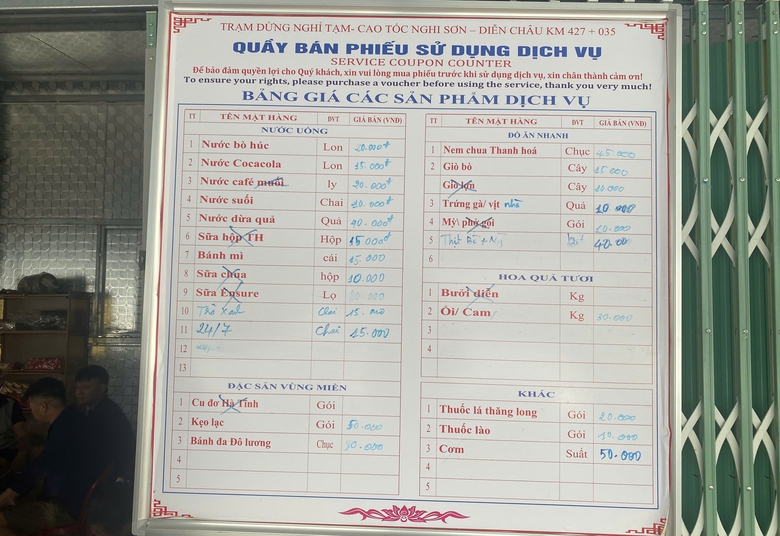 TRẠM DỪNG NGHỈ TẠM- CAO TỐC NGHI SƠN – DIỄN CHÂU KM 427 + 035
QUẦY BÁN PHIẾU SỬ DỤNG DỊCH VỤ
SERVICE COUPON COUNTER
Để bảo đảm quyền lợi cho Quý khách, xin vui lòng mua phiếu trước khi sử dụng dịch vụ, xin chân thành cảm ơn!
To ensure your rights, please purchase a voucher before using the service, thank you very much!
BẢNG GIÁ CÁC SẢN PHẨM DỊCH VỤ
TT TÊN MẶT HÀNG ĐVT GIÁ BÁN (VNĐ)
NƯỚC UỐNG
1 Nước bò húc Lon 20.000đ
2 Nước Cocacola Lon 15.000đ
3 Nước café muối ly 20.000đ
4 Nước suối Chai 10.000đ
5 Nước dừa quả Quả 40.000đ
6 Sữa hộp TH Hộp 15000đ
7 Bánh mì cái 15.000
8 Sữa chua hộp 10.000
9 Sữa Ensure Lọ
10 Trà Xanh Chai 15.000
11 24/7 Chai 15.000
12
13
ĐẶC SẢN VÙNG MIỀN
1 Cu đơ Hà Tĩnh Gói
2 Kẹo lạc Gói 50.000
3 Bánh đa Đô lương Chục
4
5
TT TÊN MẶT HÀNG ĐVT GIÁ BÁN (VNĐ)
ĐỒ ĂN NHANH
1 Nem chua Thanh hoá Chục 45.000
2 Giò bò Cây 15.000
3 Giò lợn Cây
3 Trứng gà/ vịt Quả 10.000
4 Mỳ\ phở gói Gói 10.000
5 40.00
6
HOA QUẢ TƯƠI
1 Bưởi diễn Kg
2 Ổi/ Cam Kg 30.000
3
4
KHÁC
1 Thuốc lá thăng long Gói 20.000
2 Thuốc lào Gói 10.000
3 Cơm Suất 50.000
4
5